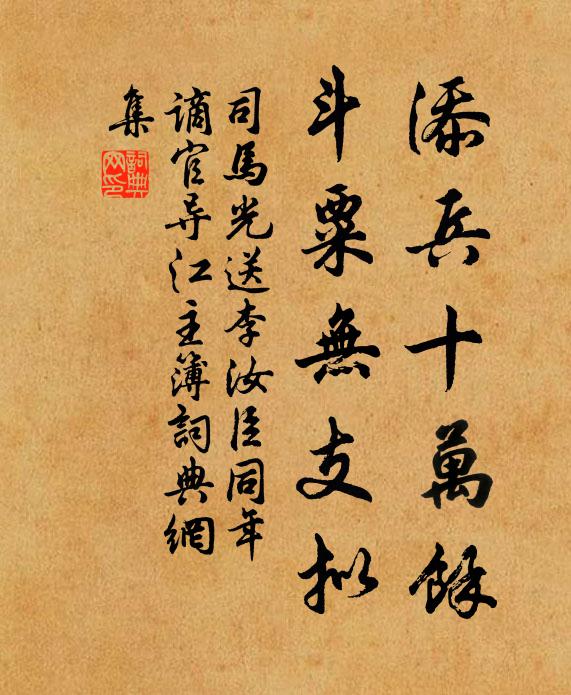 添兵十萬餘
斗粟無支拟
司馬光送李汝臣同年
谪官导江主簿詞典網
集
詞典
网印